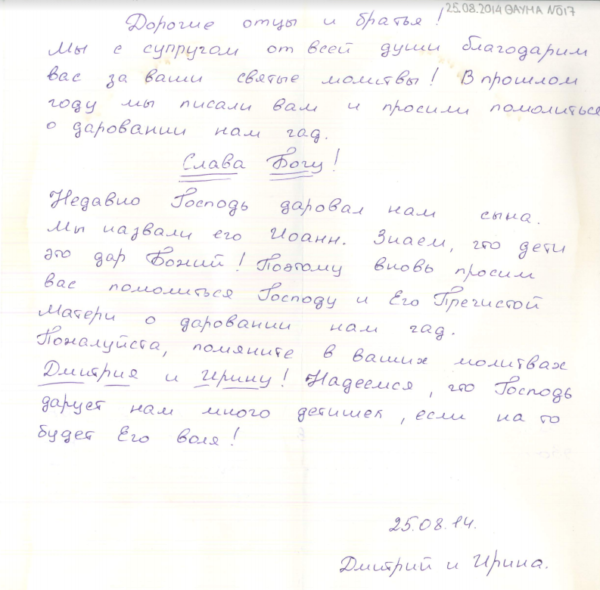 25.08.2014 ΘΑΥΜΑ №017
Дорогие отцы и братья!
Мы с супругам от всей души благодарим
вас за ваши святые молитвы! В прошлом
году мы писали вам и просили помолиться
о даровании нам чад.
Слава Богу!
Недавно Господь даровал нам сына.
Мы назвали его Иоанн. Знаем, что дети
это дар Божий! Поэтому вновь просим
вас помолиться Господу и Его Пречистой
Матери о даровании нам чад.
Пожалуйста, помяните в ваших молитвах
Дмитрия и Ирину! Надеемся, что Господь
дарует нам много детишек, если на то
будет Его воля!
25.08.14.
Дмитрий и Ирина.